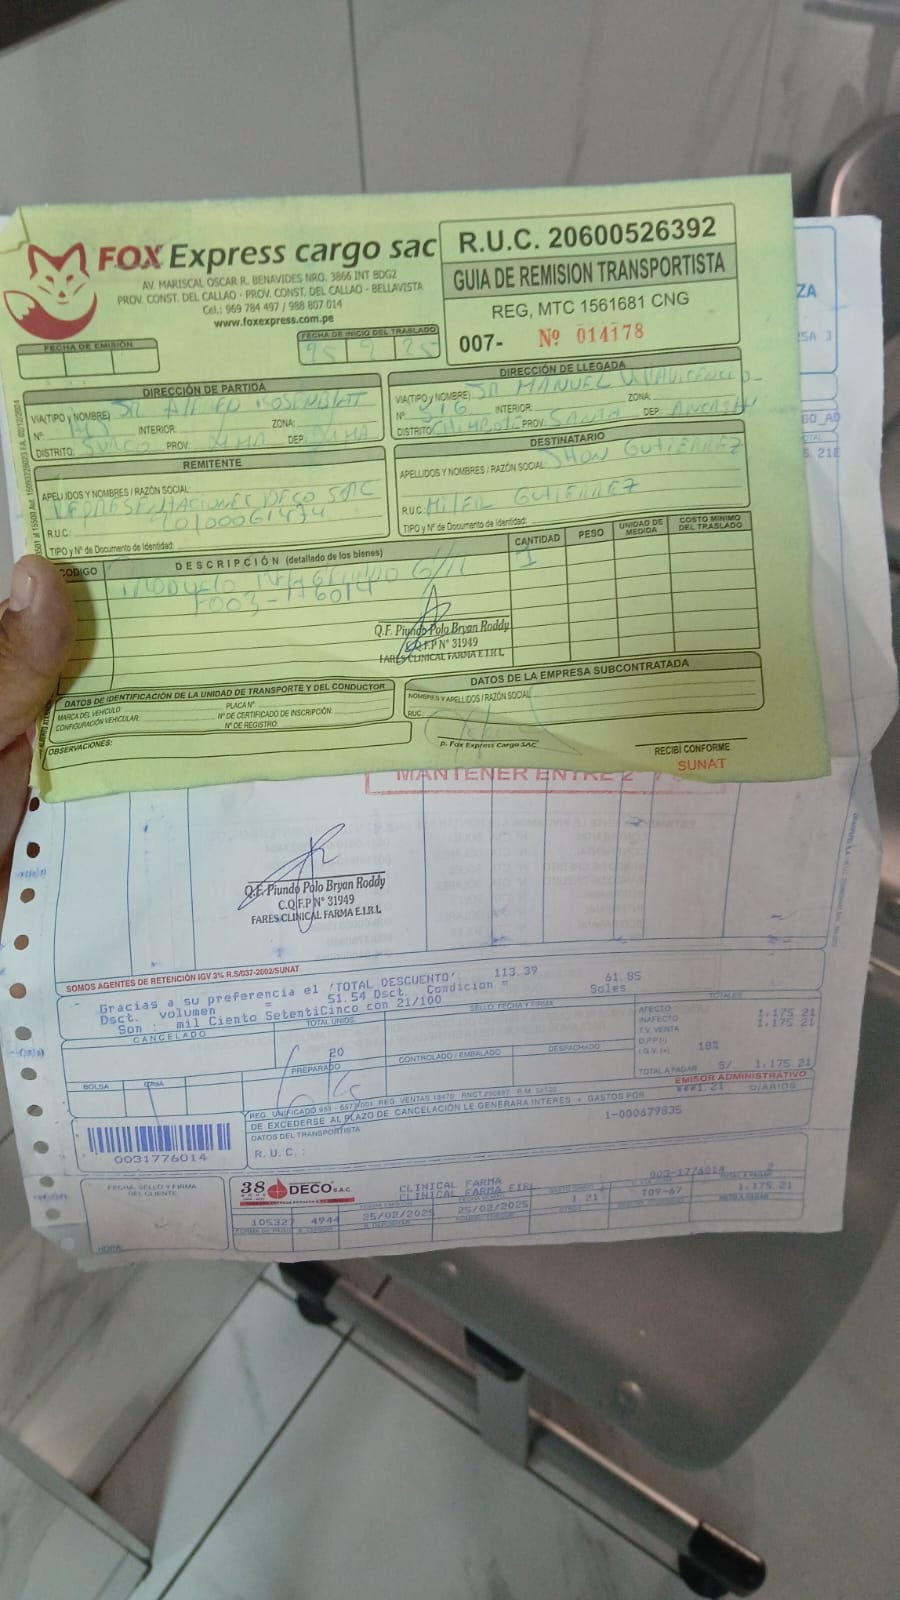 FOX Express cargo sac
AV. MARISCAL OSCAR R. BENAVIDES NRO. 3866 INT BDG2
PROV. CONST. DEL CALLAO - PROV. CONST. DEL CALLAO - BELLAVISTA
Cel.: 969 784 497 / 988 807 014
www.foxexpress.com.pe
R.U.C. 20600526392
GUIA DE REMISION TRANSPORTISTA
REG, MTC 1561681 CNG
007- Nº 014178
FECHA DE EMISIÓN
FECHA DE INICIO DEL TRASLADO
25 2 25
DIRECCIÓN DE PARTIDA
VIA(TIPO y NOMBRE)
Nº INTERIOR: ZONA:
DISTRITO: SURCO PROV. LIMA DEP. LIMA
DIRECCIÓN DE LLEGADA
VIA(TIPO y NOMBRE) JR MANUEL VILLAVICENCIO
Nº 316 INTERIOR: ZONA:
DISTRITO: CHIMBOTE PROV. SANTA DEP. ANCASH
REMITENTE
APELLIDOS Y NOMBRES / RAZÓN SOCIAL:
REPRESENTACIONES DECO SAC
R.U.C.:
TIPO y Nº de Documento de Identidad:
DESTINATARIO
APELLIDOS Y NOMBRES / RAZÓN SOCIAL: JHON GUTIERREZ
R.U.C: GUTIERREZ
TIPO y Nº de Documento de Identidad:
CODIGO DESCRIPCIÓN (detallado de los bienes) CANTIDAD PESO UNIDAD DE MEDIDA COSTO MINIMO DEL TRASLADO
1
Q.F. Piundo Polo Bryan Roddy
C.Q.F.P Nº 31949
FARES CLINICAL FARMA E.I.R.L
DATOS DE IDENTIFICACIÓN DE LA UNIDAD DE TRANSPORTE Y DEL CONDUCTOR
MARCA DEL VEHICULO: PLACA Nº
CONFIGURACIÓN VEHICULAR: Nº DE CERTIFICADO DE INSCRIPCIÓN:
Nº DE REGISTRO:
OBSERVACIONES:
DATOS DE LA EMPRESA SUBCONTRATADA
NOMBRES Y APELLIDOS / RAZÓN SOCIAL
RUC:
p. Fox Express Cargo SAC
RECIBÍ CONFORME
SUNAT
MANTENER ENTRE 2°
Q.F. Piundo Polo Bryan Roddy
C.Q.F.P Nº 31949
FARES CLINICAL FARMA E.I.R.L
SOMOS AGENTES DE RETENCIÓN IGV 3% R.S/037-2002/SUNAT
Gracias a su preferencia el 'TOTAL DESCUENTO' 113.39
Dsct. volumen = 51.54 Dsct. Condicion = 61.85
Son : mil Ciento SetentiCinco con 21/100 Soles
CANCELADO
TOTAL UNIDS.
20
SELLO, FECHA Y FIRMA
TOTALES
AFECTO 1,175 21
INAFECTO 1,175 21
T.V. VENTA
D.P.P (-)
I.G.V. (+) 18%
TOTAL A PAGAR S/ 1,175 21
PREPARADO
CONTROLADO / EMBALADO
DESPACHADO
BOLSA
EMISOR ADMINISTRATIVO
DE EXCEDERSE AL PLAZO DE CANCELACIÓN LE GENERARA INTERES + GASTOS POR ***1.21 DIARIOS
DATOS DEL TRANSPORTISTA 1-000679835
R. U. C. :
0031776014
FECHA, SELLO Y FIRMA
DEL CLIENTE
HORA:
38 DECO S.A.C.
CLINICAL FARMA
CLINICAL FARMA EIRL
003-1776014
105327 4944 25/02/2025 25/02/2025 1 21 T09-67 1,175.21